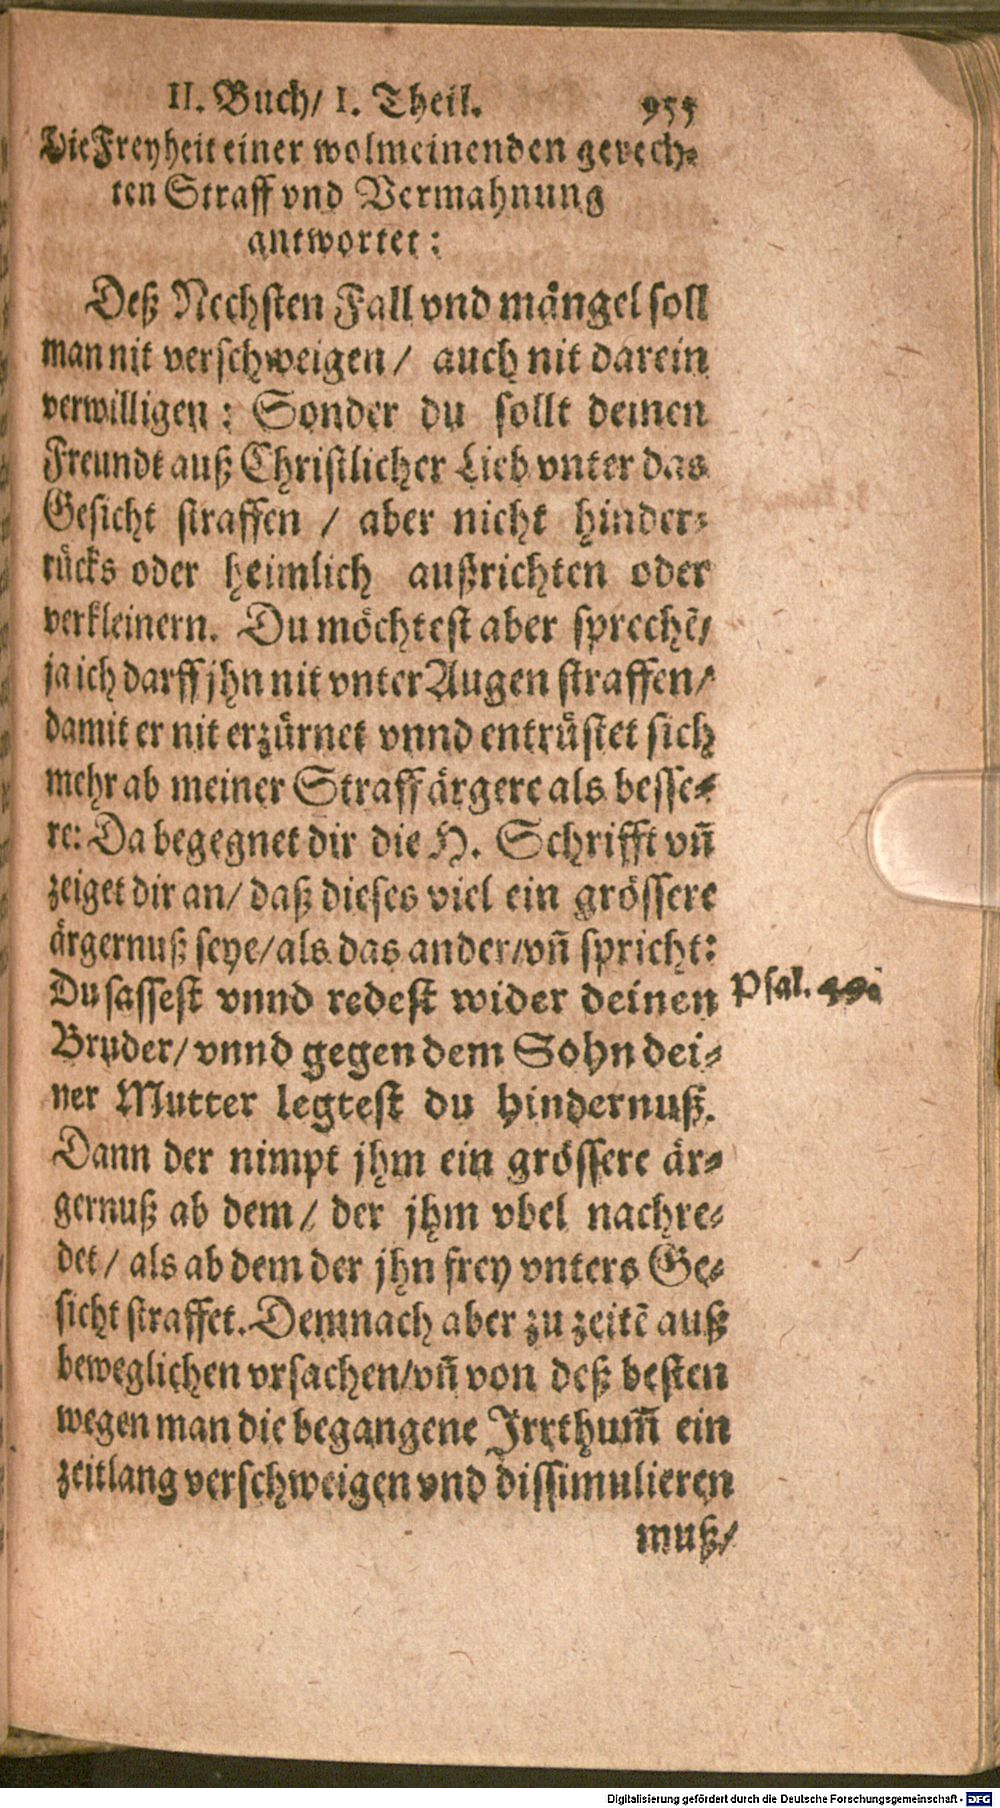 II. Buch/ I. Theil. 955
Die Freyheit einer wolmeinenden gerech-
ten Straff vnd Vermahnung
antwortet:
Deß Nechsten Fall vnd mängel soll
man nit verschweigen/ auch nit darein
verwilligen: Sonder du sollt deinen
Freundt auß Christlicher Lieb vnter das
Gesicht straffen / aber nicht hinder-
rücks oder heimlich außrichten oder
verkleinern. Du möchtest aber sprechẽ/
ja ich darff jhn nit vnter Augen straffen/
damit er nit erzürnet vnnd entrüstet sich
mehr ab meiner Straff ärgere als besse-
re: Da begegnet dir die H. Schrifft vñ
zeiget dir an/ daß dieses viel ein grössere
ärgernuß seye/ als das ander/ vñ spricht:
Du sassest vnnd redest wider deinen
Psal.
Bruder/ vnnd gegen dem Sohn dei-
ner Mutter legtest du hindernuß.
Dann der nimpt jhm ein grössere är-
gernuß ab dem/ der jhm vbel nachre-
det/ als ab dem der jhn frey vnters Ge-
sicht straffet. Demnach aber zu zeitẽ auß
beweglichen vrsachen/ vñ von deß besten
wegen man die begangene Irrthum̃ ein
zeitlang verschweigen vnd dissimulieren
muß/
Digitalisierung gefördert durch die Deutsche Forschungsgemeinschaft - DFG